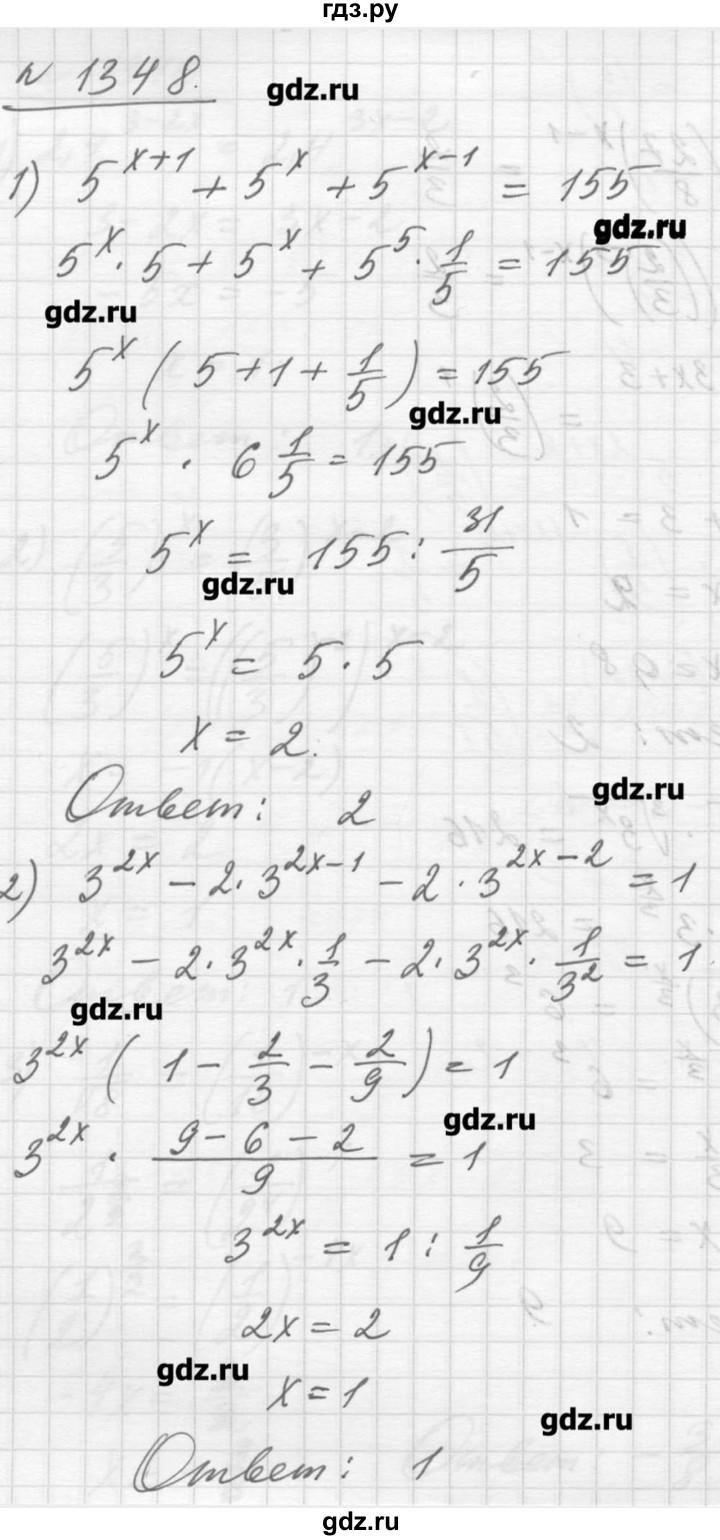 гдз.ру
№ 1348.
gdz.ru
1) 5^{x+1} + 5^x + 5^{x-1} = 155
gdz.ru
5^x · 5 + 5^x + 5^5 · 1/5 = 155
gdz.ru
5^x ( 5 + 1 + 1/5 ) = 155
gdz.ru
5^x · 6 1/5 = 155
5^x = 155 : 31/5
gdz.ru
5^x = 5 · 5
x = 2.
gdz.ru
Ответ: 2
2) 3^{2x} - 2 · 3^{2x-1} - 2 · 3^{2x-2} = 1
3^{2x} - 2 · 3^{2x} · 1/3 - 2 · 3^{2x} · 1/3^2 = 1
gdz.ru
3^{2x} ( 1 - 2/3 - 2/9 ) = 1
gdz.ru
3^{2x} · (9 - 6 - 2)/9 = 1
3^{2x} = 1 : 1/9
2x = 2
gdz.ru
x = 1
gdz.ru
Ответ: 1
gdz.ru